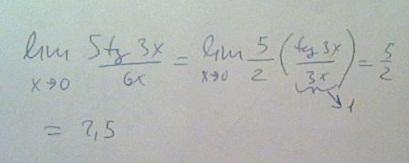 lim x→0 5tg 3x / 6x = lim x→0 5/2 (tg 3x / 3x) = 5/2
→1
= 2,5